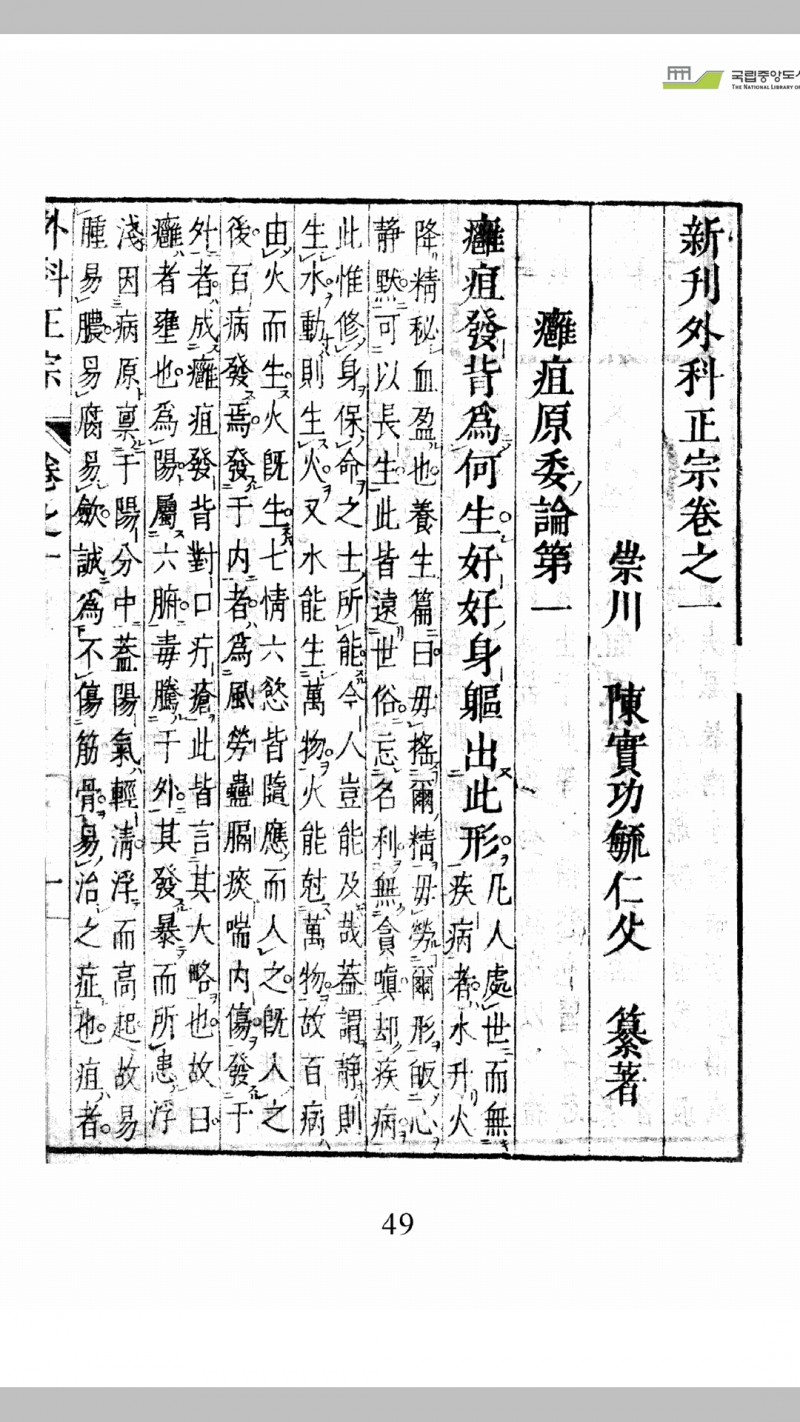 국립중앙도서
THE NATIONAL LIBRARY OF
新刊外科正宗卷之一
崇川 陳實功毓仁父 纂著
癰疽原委論第一
癰疽發背爲何生好好身軀出此形
凡人處世而無
疾病者水升火
降精秘血盈也養生篇曰毋搖爾精毋勞爾形皈心
静默可以長生此皆遠世俗忘名利無貪嗔却疾病
此惟修身保命之士所能今人豈能及哉蓋謂静則
生水動則生火又水能生萬物火能尅萬物故百病
由火而生火旣生七情六慾皆隨應而人之旣人之
後百病發焉發于内者爲風勞蠱膈痰喘内傷發于
外者成癰疽發背對口疔瘡此皆言其大略也故曰
癰者壅也爲陽屬六腑毒騰于外其發暴而所患浮
淺因病原禀于陽分中蓋陽氣輕清浮而高起故易
腫易膿易腐易斂誠爲不傷筋骨易治之症也疽者
外科正宗 卷之一 一
49